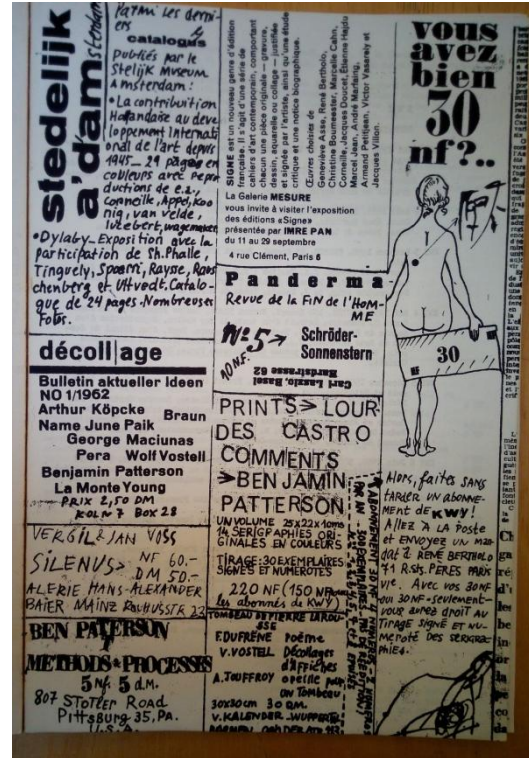 stedelijk
a'dam
Parmi les derni-
ers
catalogus
publiés par le
Stelijk Museum
Amsterdam :
•La contribuition
Hollandaise au deve
loppement Internati
onal de l'art depuis
1945_ 29 pages en
couleurs avec repro
ductions de e.a.,
Corneille, Appel, Koo
nig, van velde,
lucebert, wagemaker
•Dylaby_Exposition avec la
participation de St.Phalle,
Tinguely, Spoerri, Rayse, Raus
chenberg et Ultvedt. Catalo-
gue de 24 pages. Nombreuses
Fotos.
décollage
Bulletin aktueller Ideen
NO 1/1962
Arthur Köpcke
Braun
Name June Paik
George Maciunas
Pera Wolf Vostell
Benjamin Patterson
La Monte Young
PRIX 2,50 DM
KOLN 7 Box 28
VERGIL & JAN VOSS
SILENUS> NF 60.-
DM 50.-
ALERIE HANS-ALEXANDER
BAIER MAINZ
BEN PATERSON
METHODS & PROCESSES
5 Nf. 5 d.M.
807 Stotler Road
Pittsburg 35, PA.
U.S.A.
SIGNE est un nouveau genre d'édition
française. Il s'agit d'une série de
cahiers d'art contemporain, comportant
chacun une pièce originale — gravure,
dessin, aquarelle ou collage — justifiée
et signée par l'artiste, ainsi qu'une étude
critique et une notice biographique.
Œuvres choisies de
Geneviève Asse, René Bertholo,
Christine Boumeester, Marcelle Cahn,
Corneille, Jacques Doucet, Étienne Hajdu
Marcel Jean, André Marfaing,
Armand Petitjean, Victor Vasarely et
Jacques Villon.
La Galerie MESURE
vous invite à visiter l'exposition
des éditions «Signe»
présentée par IMRE PAN
du 11 au 29 septembre
4 rue Clément, Paris 6
Panderma
Revue de la FiN de l'HOM-
ME
No.5→
10 N.F.
Schröder-
Sonnenstern
Carl Laszlo, Basel
Nordstrasse 62
PRINTS> LOUR-
DES CASTRO
COMMENTS
>BENJAMIN
PATTERSON
UN VOLUME 25x22x10ms
14 SERIGRAPHIES ORI-
GINALES EN COULEURS
TIRAGE: 30 EXEMPLAIRES
SIGNES ET NUMEROTES
220 NF (150 NF pour
les abonnés de KWY)
TOMBEAU DE PIERRE LAROU-
SSE
F.DUFRÊNE Poème
V.VOSTELL Décollages
d'Affiches
A.JOUFFROY préface pour
un Tombeau
30x30cm 30 DM.
V.KALENDER_WUPPERTAL
vous
avez
bien
30
nf?..
30
Alors, faites SANS
TARDER UN ABONNE-
MENT DE KWY!
Allez A LA POSTE
et ENVOYEZ UN MAN
dat à RENÉ BERTHOLO
71 R. Sts. PERES PARIS
VIe. Avec vos 30NF
OUI 30NF-seulement-
vous aurez droit au
TIRAGE SIGNÉ ET NU-
MEROTÉ DES SERIGRA-
PHIES.